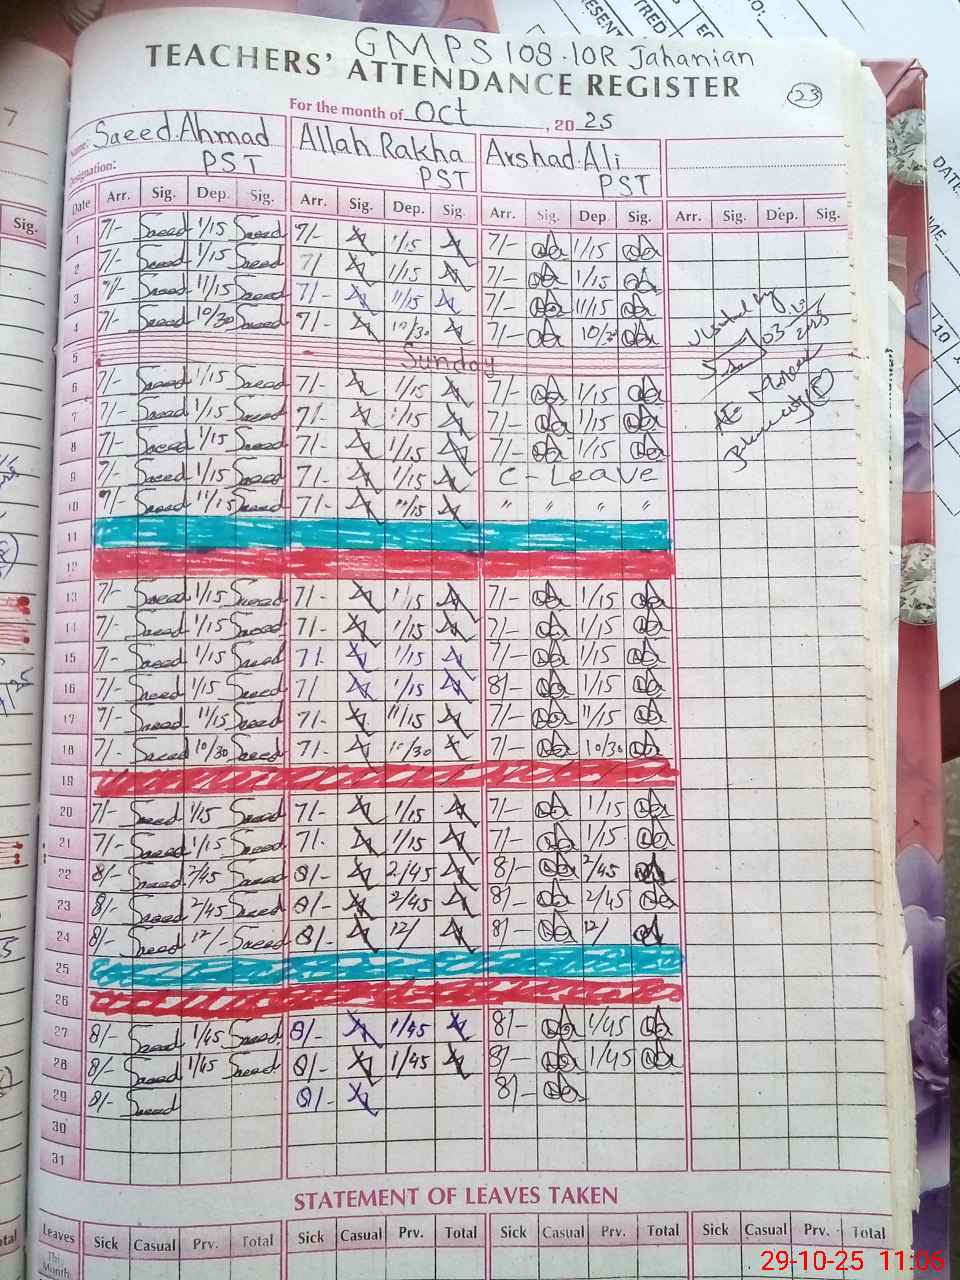 GMPS 108.10R Jahanian
TEACHERS' ATTENDANCE REGISTER
23
For the month of Oct, 2025
Name: Saeed Ahmad Allah Rakha Arshad Ali
Designation: PST PST PST
Date Arr. Sig. Dep. Sig. Arr. Sig. Dep. Sig. Arr. Sig. Dep Sig. Arr. Sig. Dep. Sig.
1 7/- Saeed 1/15 Saeed 7/- 1/15 7/- 1/15
2 7/- Saeed 1/15 Saeed 7/ 1/15 7/- 1/15
3 7/- Saeed 11/15 Saeed 7/- 11/15 7/- 11/15
4 7/- Saeed 10/30 Saeed 7/- 10/30 7/- 10/30
5 Sunday
6 7/- Saeed 1/15 Saeed 7/- 1/15 7/- 1/15
7 7/- Saeed 1/15 Saeed 7/- 1/15 7/- 1/15
8 7/- Saeed 1/15 Saeed 7/- 1/15 7/- 1/15
9 7/- Saeed 1/15 Saeed 7/- 1/15 C - Leave
10 7/- Saeed 11/15 Saeed 7/- 11/15 " " " "
11
12
13 7/- Saeed 1/15 Saeed 7/- 1/15 7/- 1/15
14 7/- Saeed 1/15 Saeed 7/- 1/15 7/- 1/15
15 7/- Saeed 1/15 Saeed 7/- 1/15 7/- 1/15
16 7/- Saeed 1/15 Saeed 7/ 1/15 8/- 1/15
17 7/- Saeed 11/15 Saeed 7/- 11/15 7/- 11/15
18 7/- Saeed 10/30 Saeed 7/- 10/30 7/- 10/30
19
20 7/- Saeed 1/15 Saeed 7/- 1/15 7/- 1/15
21 7/- Saeed 1/15 Saeed 7/- 1/15 7/- 1/15
22 8/- Saeed 2/45 Saeed 8/- 2/45 8/- 2/45
23 8/- Saeed 2/45 Saeed 8/- 2/45 8/- 2/45
24 8/- Saeed 12/- Saeed 8/- 12/ 8/- 12/
25
26
27 8/- Saeed 1/45 Saeed 8/- 1/45 8/- 1/45
28 8/- Saeed 1/45 Saeed 8/- 1/45 8/- 1/45
29 8/- Saeed 8/- 8/-
30
31
Visited by
03-10
2025
STATEMENT OF LEAVES TAKEN
Leaves Sick Casual Prv. Total Sick Casual Prv. Total Sick Casual Prv. Total Sick Casual Prv. Total
This Month
29-10-25 11:06